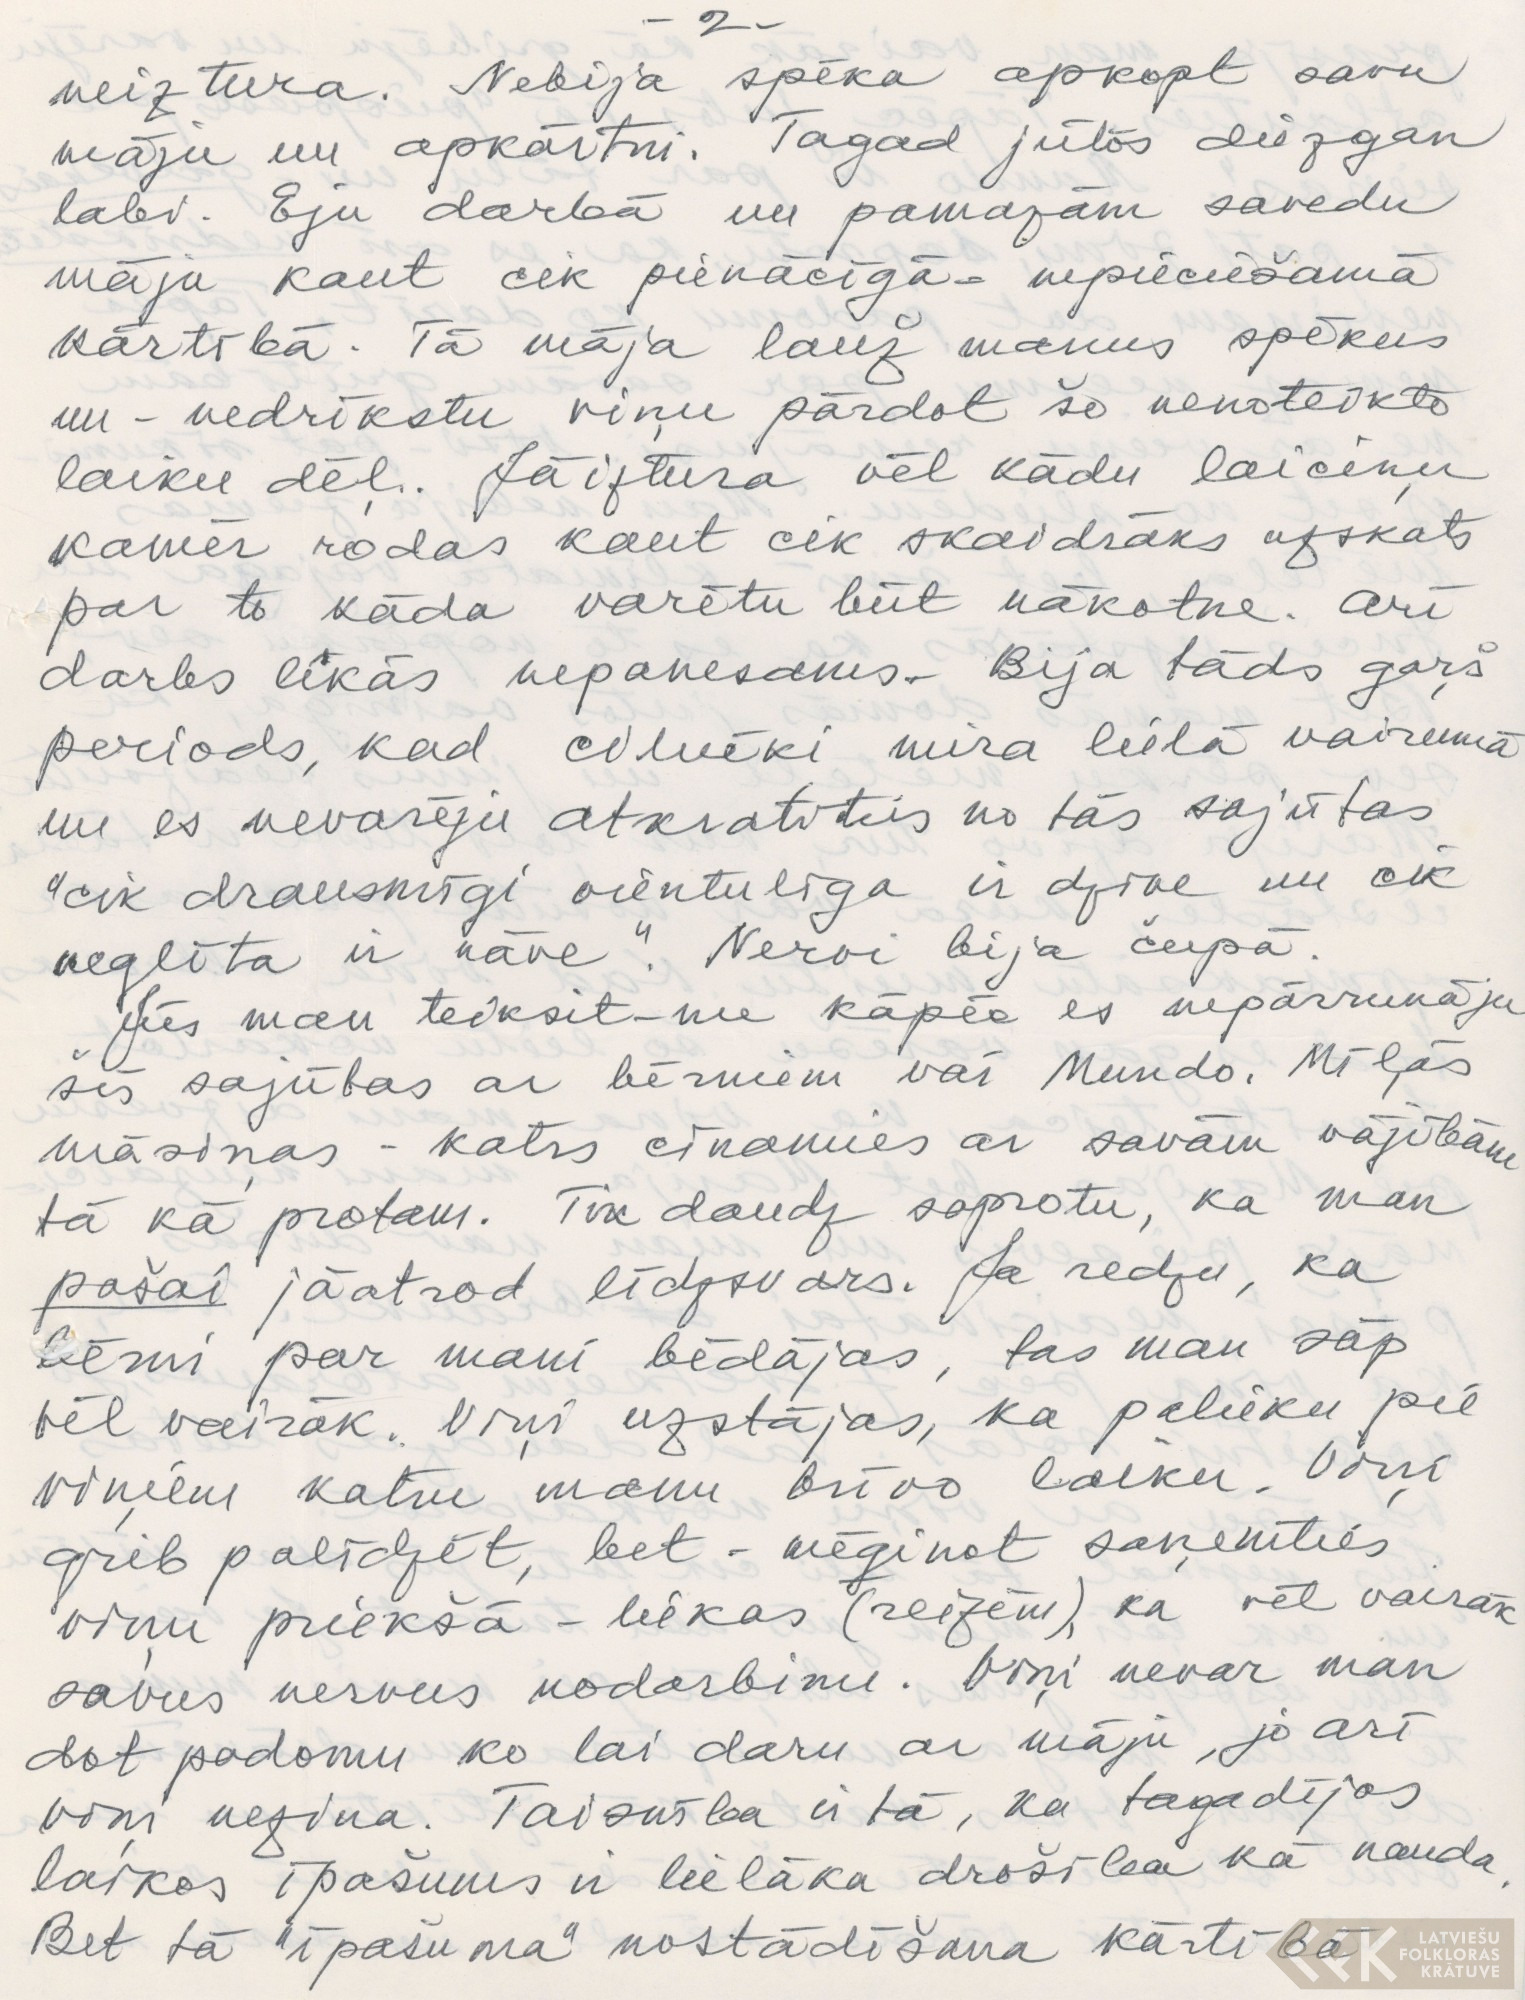 - 2 -
neiztura. Nebija spēka apkopt savu
māju un apkārtni. Tagad jūtos diezgan
labi. Eju darbā un pamazām savedu
māju kaut cik pienācīgā - nepieciešamā
kārtībā. Tā māja lauž manus spēkus
un - nedrīkstu viņu pārdot šo nenoteikto
laiku dēļ. Jāiztura vēl kādu laiciņu
kamēr rodas kaut cik skaidrāks uzskats
par to kāda varētu būt nākotne. Arī
darbs likās nepanesams. Bija tāds gaŗš
periods, kad cilvēki mira lielā vairumā
un es nevarēju atkratīties no tās sajūtas
"cik drausmīgi vientulīga ir dzīve un cik
neglīta ir nāve". Nervi bija čupā.
Jūs man teiksit - nu kāpēc es nepārrunāju
šīs sajūtas ar bērniem vai Mundo. Mīļās
māsiņas - katrs cīnamies ar savām vājībām
tā kā protam. Tik daudz saprotu, ka man
pašai jāatrod līdzsvars. Ja redzu, ka
bērni par mani bēdājas, tas man sāp
vēl vairāk. Viņi uzstājas, ka palieku pie
viņiem katru manu brīvo laiku. Viņi
grib palīdzēt, bet - mēģinot saņemties
viņu priekšā - liekas (reizēm), ka vēl vairāk
savus nervus nodarbinu. Viņi nevar man
dot padomu ko lai daru ar māju, jo arī
viņi nezina. Taisnība ir tā, ka tagadējos
laikos īpašums ir lielāka drošība kā nauda.
Bet tā "īpašuma" nostādīšana kārtībā
LATVIEŠU
FOLKLORAS
KRĀTUVE